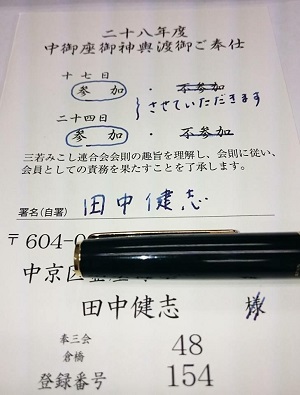 二十八年度
中御座御神輿渡御ご奉仕
十七日
参加 ・ 不参加
させていただきます
二十四日
参加 ・ 不参加
三若みこし連合会会則の趣旨を理解し、会則に従い、
会員としての責務を果たすことを了承します。
署名(自署) 田中健志
〒604-0
中京区
田中健志 様
奉三会
倉橋 48
登録番号 154